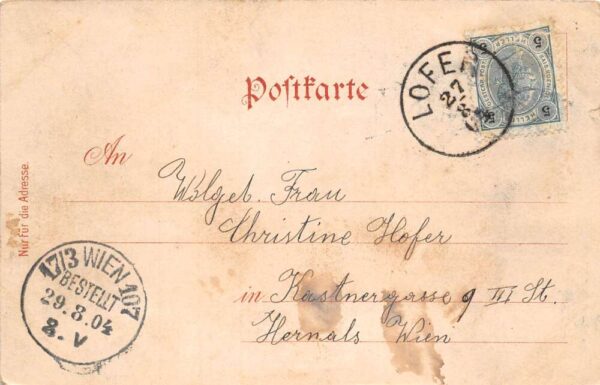 Postkarte
LOFER
27
5
5
An
Wolgeb. Frau
Christine Hofer
in Kastnergasse 9 III St.
Hernals Wien
Nur für die Adresse.
17/3 WIEN 107
BESTELLT
29.8.04
8.V